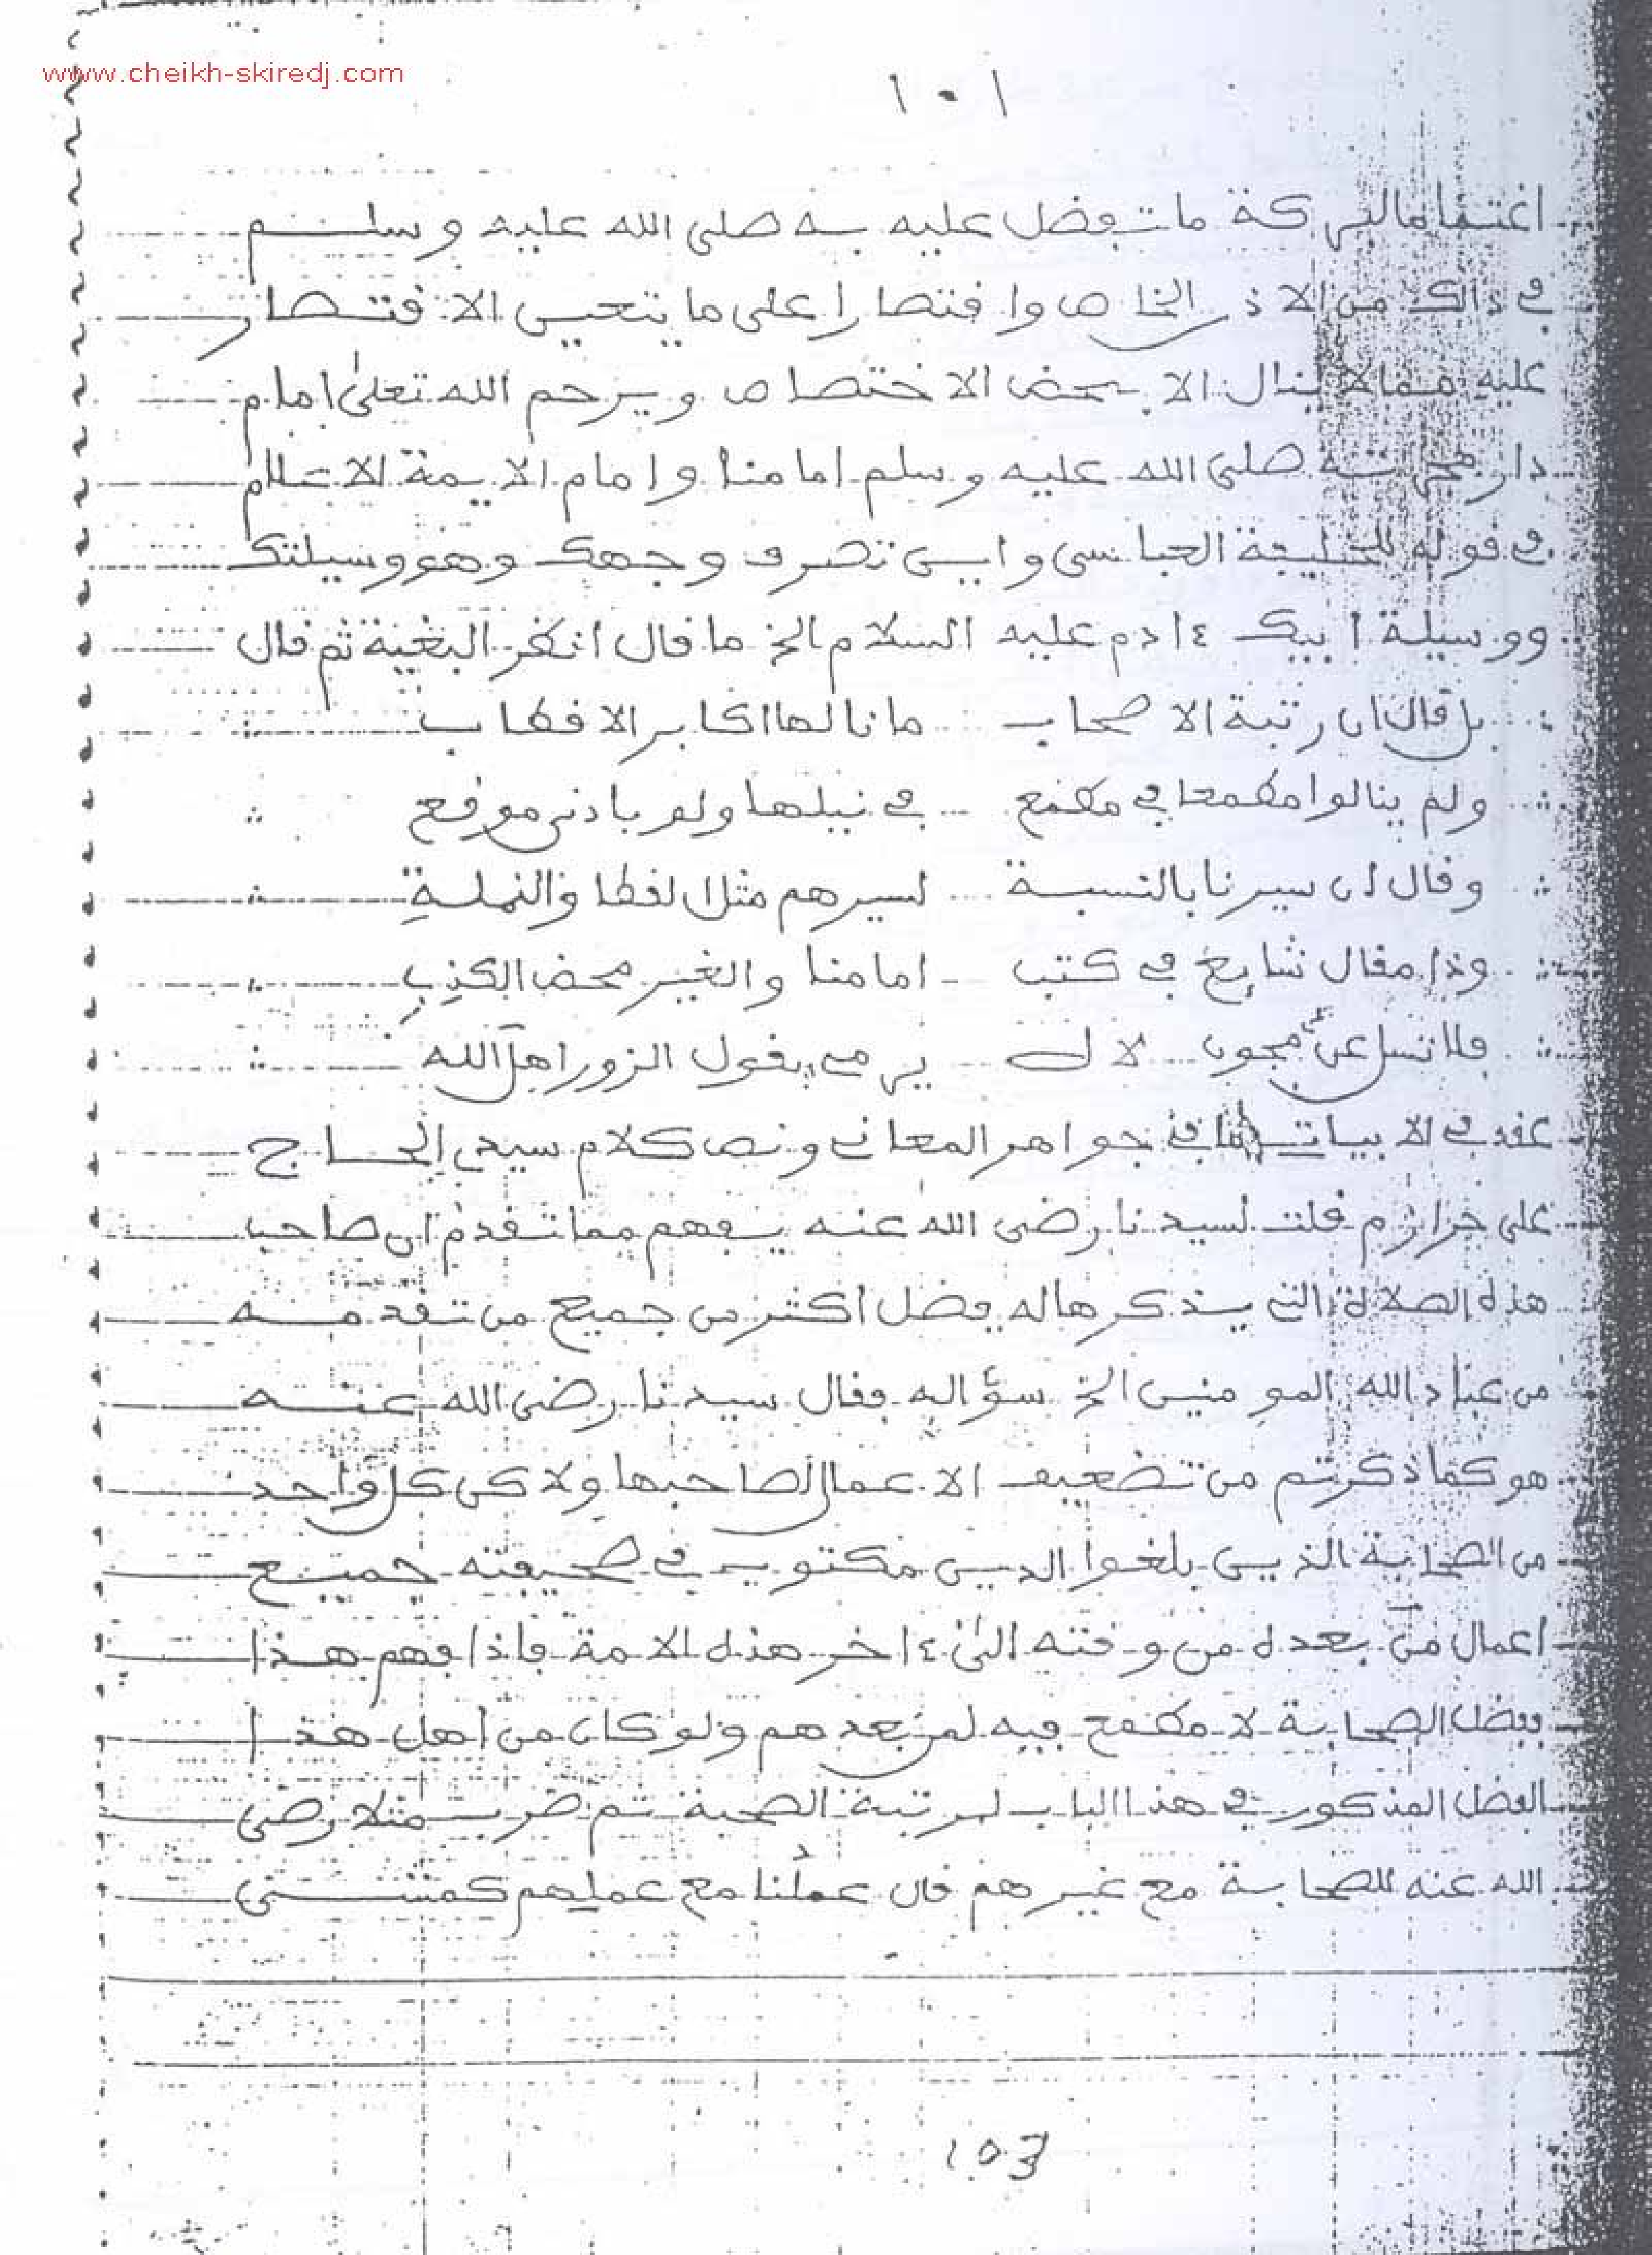 www.cheikh-skiredj.com
١٠١
اغتناما لبركة ما تفضل عليه به صلى الله عليه وسلم
في ذالك من الاذن الخاص واقتصارا على ما يتعين الاقتصار
عليه مما لا ينال الا بمحض الاختصاص ويرحم الله تعلى امام
دار هجرته صلى الله عليه وسلم امامنا وامام الايمة الاعلام
في قوله للخليفة العباسى واين تصرف وجهك وهو وسيلتك
ووسيلة ابيك ءادم عليه السلام الخ ما قال انظر البغية ثم قال
بل قال ان رتبة الاصحاب ما نالها اكابر الاقطاب
ولم ينالوا مطمعا في مطمع في نيلها ولو بادنى موقع
وقال ان سيرنا بالنسبة لسيرهم مثل القطا والنملة
وذا مقال شايع في كتب امامنا والغير محض الكذب
فلا تسل عن مجون لاه يرمي بقول الزور اهل الله
عقد في الابيات ما في جواهر المعاني ونص كلام سيدي الحاج
على حرازم قلت لسيدنا رضى الله عنه يفهم مما تقدم ان صاحب
هذه الصلاة التي يذكرها له فضل اكثر من جميع من تقدمه
من عباد الله المومنين الخ سؤاله فقال سيدنا رضى الله عنه
هو كما ذكرتم من تضعيف الاعمال لصاحبها ولاكن كل واحد
من الصحابة الذين بلغوا الدين مكتوب في صحيفته جميع
اعمال من بعده من وقته الى ءاخر هذه الامة فاذا فهم هذا
ففضل الصحابة لا مطمع فيه لمن بعدهم ولو كان من اهل هذا
الفضل المذكور في هذا الباب لمرتبة الصحبة ثم ضرب مثلا رضى
الله عنه للصحابة مع غيرهم قال عملنا مع عملهم كمشى
103